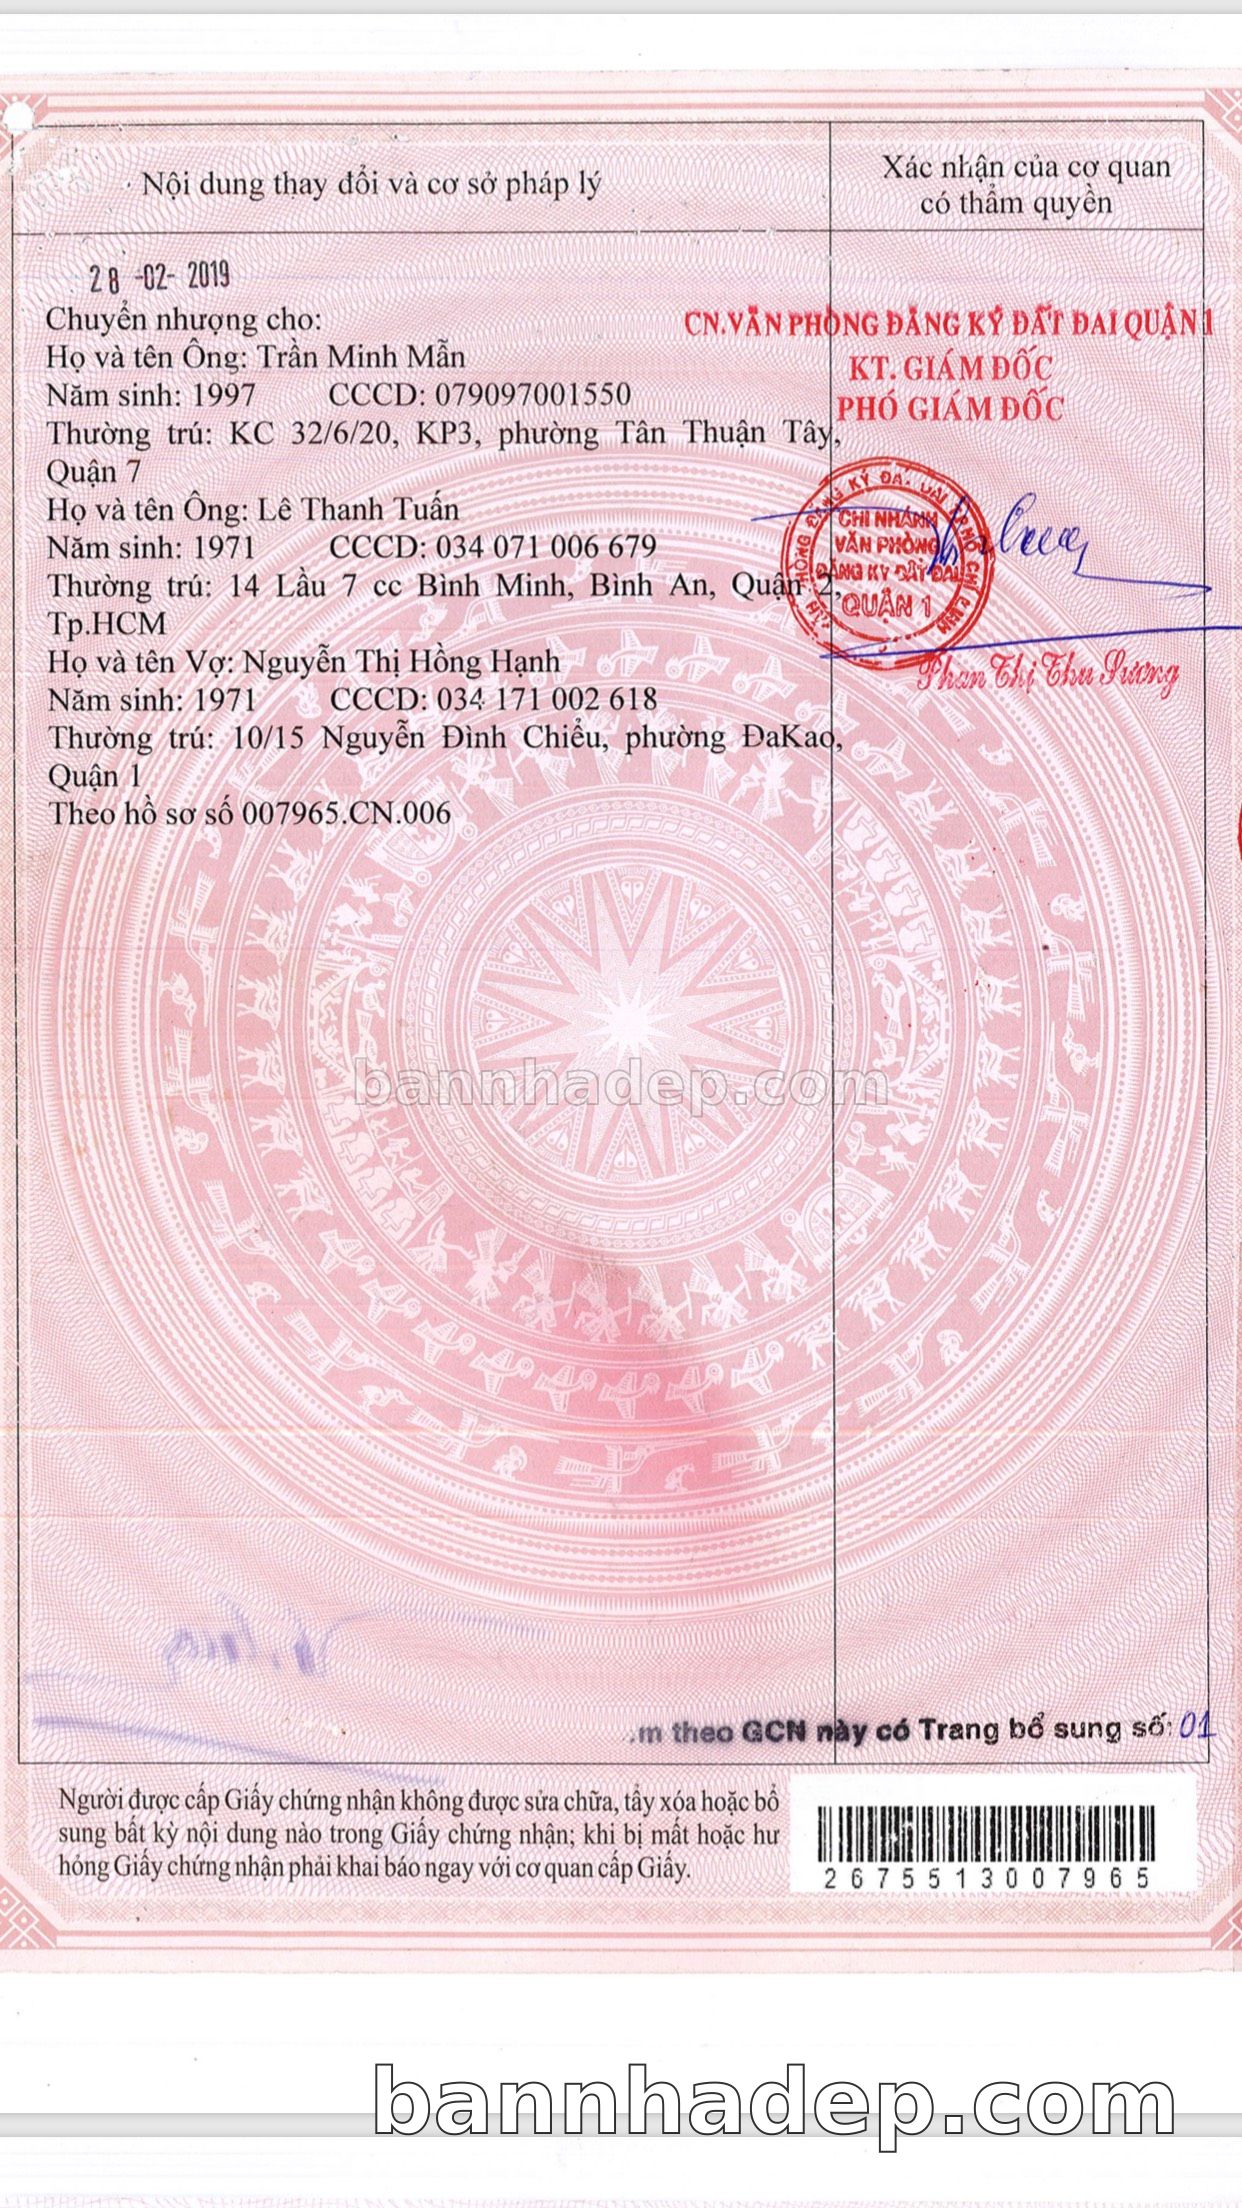 Nội dung thay đổi và cơ sở pháp lý
Xác nhận của cơ quan
có thẩm quyền
28 -02- 2019
Chuyển nhượng cho:
Họ và tên Ông: Trần Minh Mẫn
Năm sinh: 1997 CCCD: 079097001550
Thường trú: KC 32/6/20, KP3, phường Tân Thuận Tây,
Quận 7
Họ và tên Ông: Lê Thanh Tuấn
Năm sinh: 1971 CCCD: 034 071 006 679
Thường trú: 14 Lầu 7 cc Bình Minh, Bình An, Quận 2,
Tp.HCM
Họ và tên Vợ: Nguyễn Thị Hồng Hạnh
Năm sinh: 1971 CCCD: 034 171 002 618
Thường trú: 10/15 Nguyễn Đình Chiểu, phường ĐaKao,
Quận 1
Theo hồ sơ số 007965.CN.006
CN.VĂN PHÒNG ĐĂNG KÝ ĐẤT ĐAI QUẬN 1
KT. GIÁM ĐỐC
PHÓ GIÁM ĐỐC
CHI NHÁNH
VĂN PHÒNG
ĐĂNG KÝ ĐẤT ĐAI
QUẬN 1
Phan Thị Thu Sương
bannhadep.com
m theo GCN này có Trang bổ sung số: 01
Người được cấp Giấy chứng nhận không được sửa chữa, tẩy xóa hoặc bổ
sung bất kỳ nội dung nào trong Giấy chứng nhận; khi bị mất hoặc hư
hỏng Giấy chứng nhận phải khai báo ngay với cơ quan cấp Giấy.
2675513007965
bannhadep.com